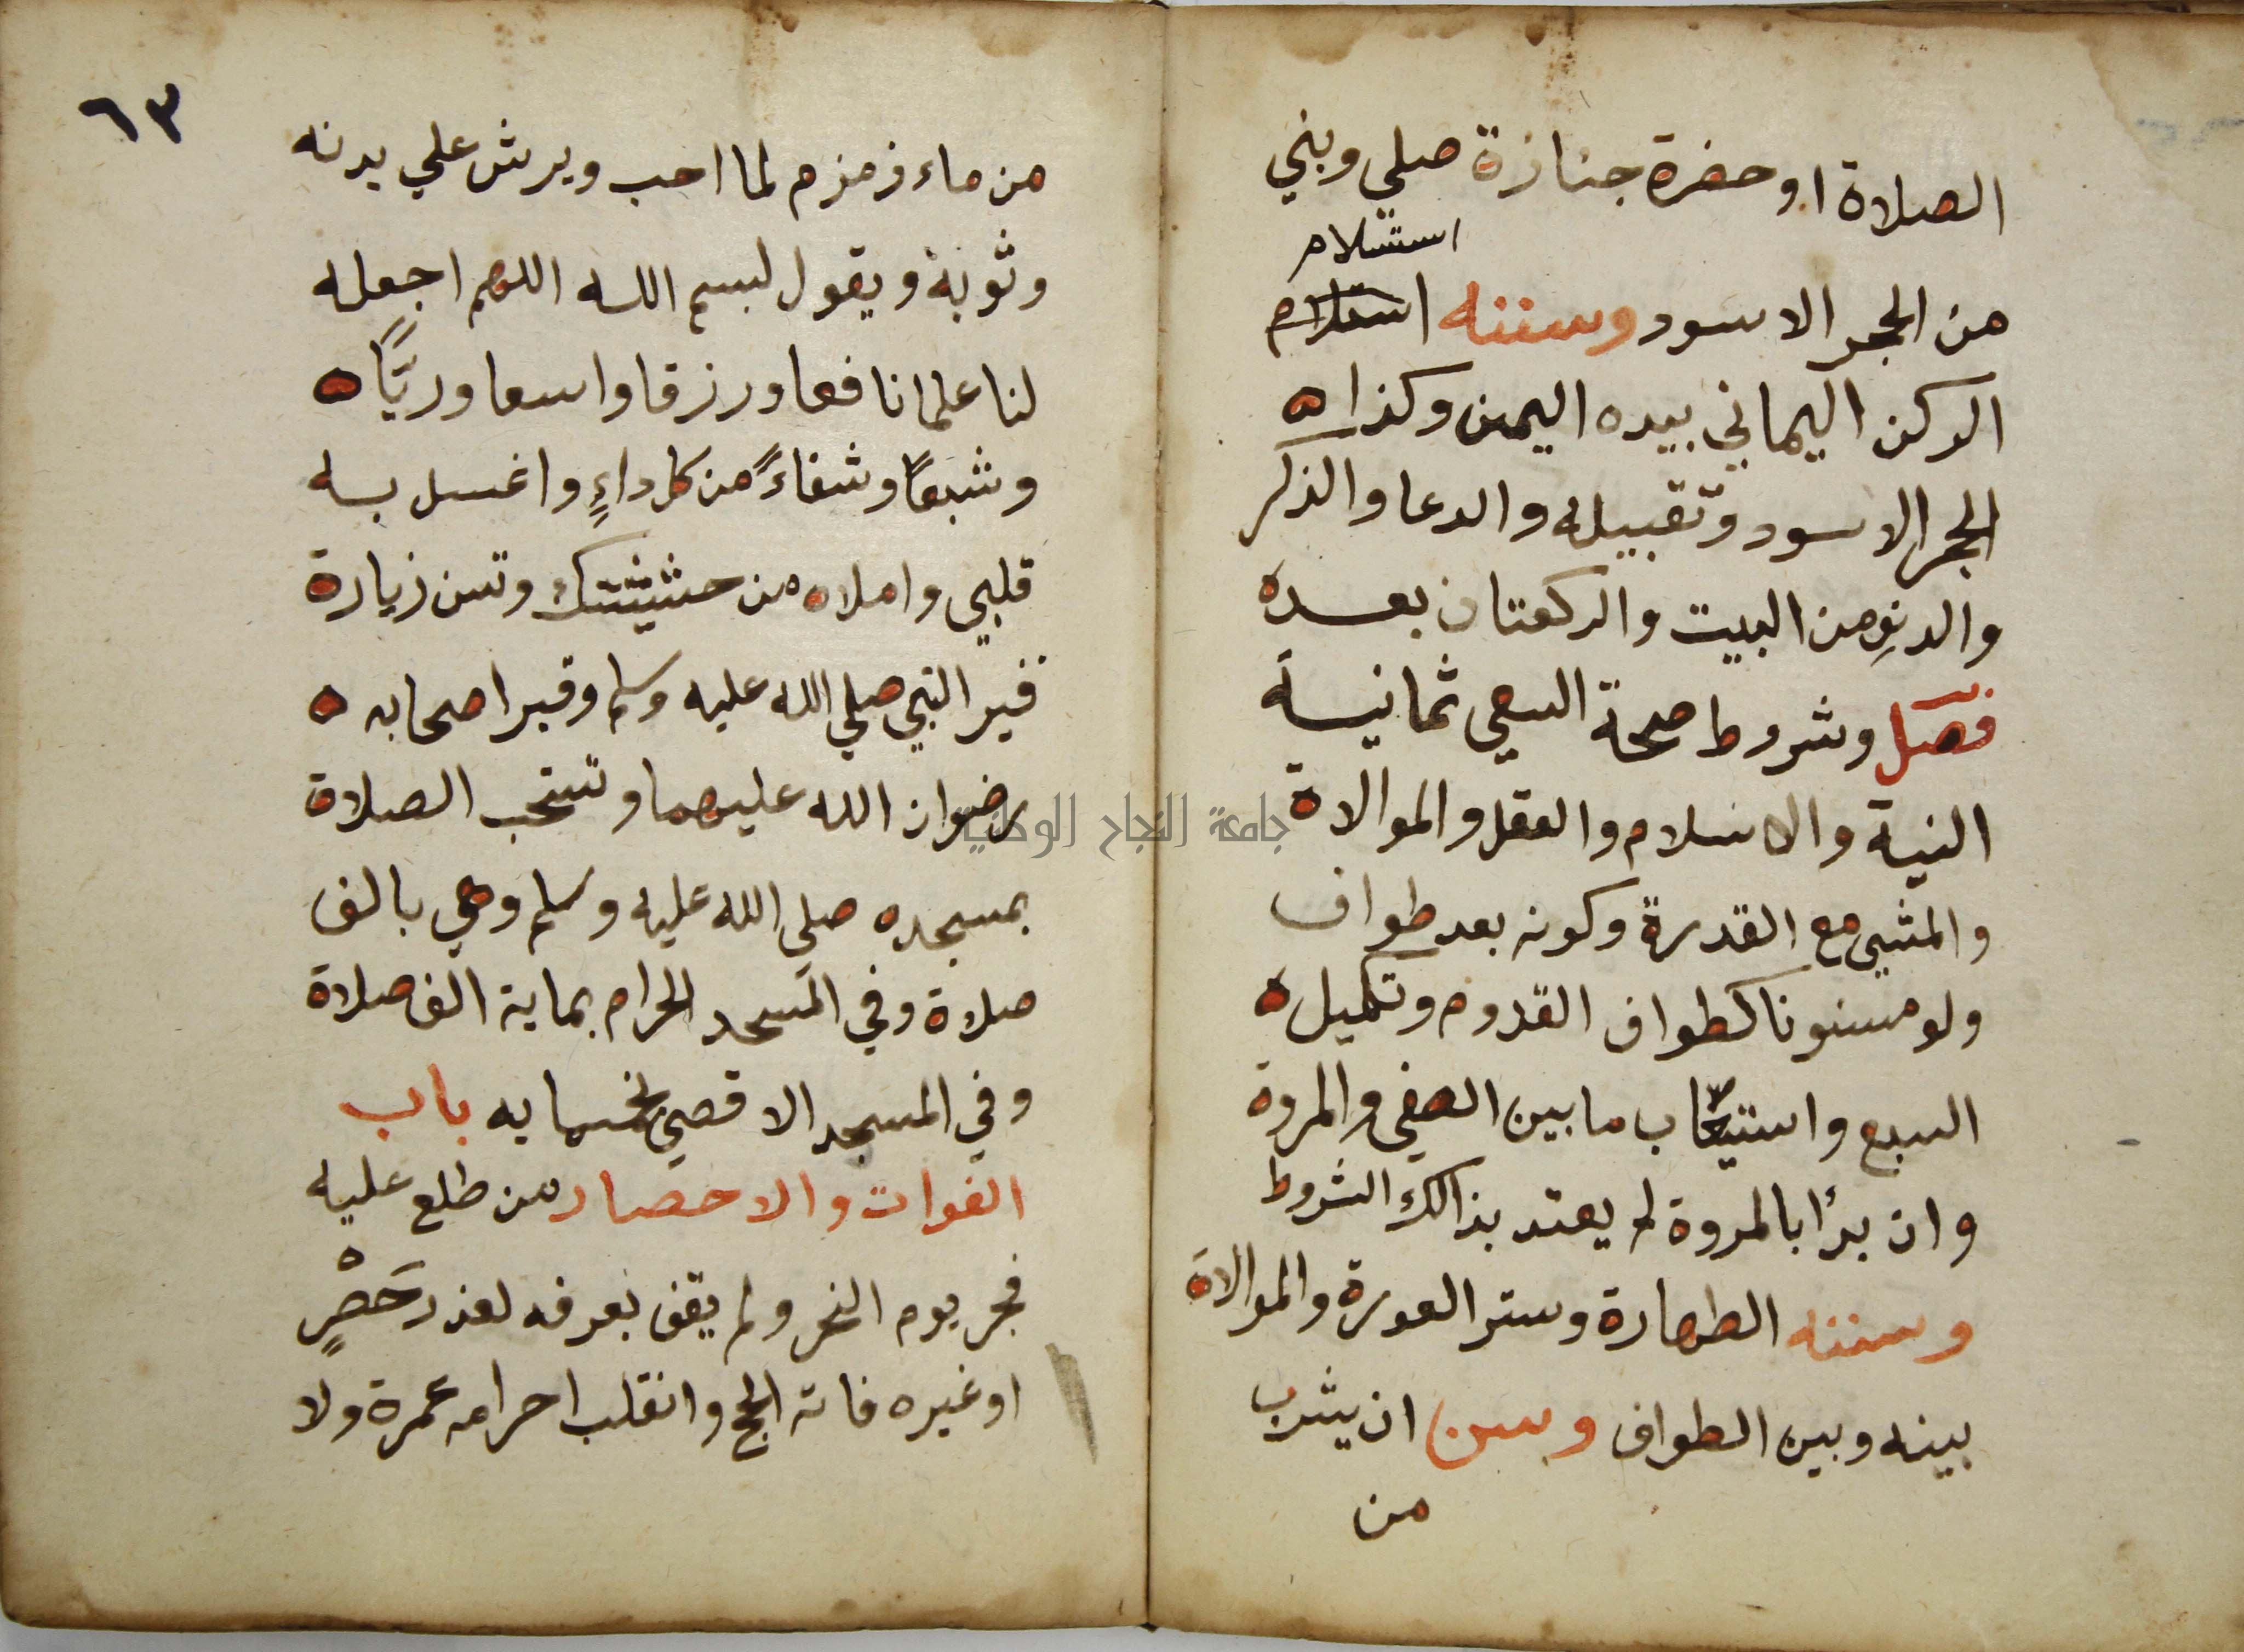 الصلاة او حضرة جنازة صلي وبني
استلام
من الحجر الاسود وسننه استلام
الركن اليماني بيده اليمين وكذا
الحجر الاسود وتقبيله والدعا والذكر
والدنو من البيت والركعتان بعده
فصل وشروط صحة السعي ثمانية
النية والاسلام والعقل والموالاة
والمشي مع القدرة وكونه بعد طواف
ولو مسنونا كطواف القدوم وتكميل
السبع واستيعاب ما بين الصفي والمروة
وان بدأ بالمروة لم يعتد بذالك الشروط
وسننه الطهارة وستر العورة والموالاة
بينه وبين الطواف وسن ان يشرب
من
٦٣
من ماء زمزم لما احب ويرش علي بدنه
وثوبه ويقول لبسم الله اللهم اجعله
لنا علما نافعا ورزقا واسعا وريًّا
وشبعًا وشفاءً من كل داءٍ واغسل به
قلبي واملاه من حشيتك وتسن زيارة
قبر النبي صلي الله عليه وسلم وقبر اصحابه
رضوان الله عليهما وتستحب الصلاة
بمسجده صلي الله عليه وسلم وهي بالف
صلاة وفي المسجد الحرام بماية الف صلاة
وفي المسجد الاقصي بخمسمايه باب
الفوات والاحصار من طلع عليه
فجر يوم النحر ولم يقف بعرفه لعذر حَصْرٍ
او غيره فاته الحج وانقلب احرامه عمرة ولا
جامعة النجاح الوطنية